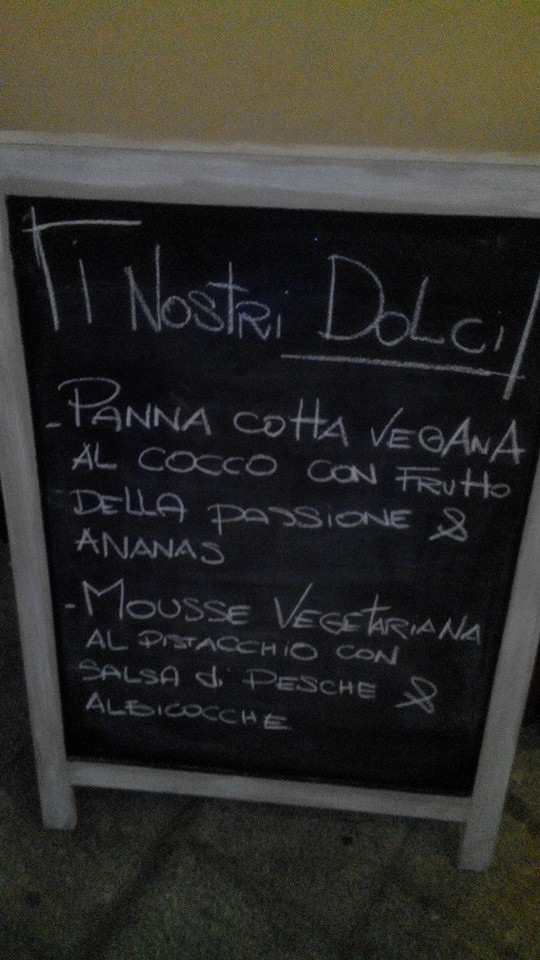 I Nostri Dolci
- PANNA COTTA VEGANA
AL COCCO CON FRUTTO
DELLA PASSIONE &
ANANAS
- MOUSSE VEGETARIANA
AL PISTACCHIO CON
SALSA di PESCHE &
ALBICOCCHE